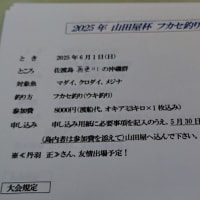 2025年 山田屋杯 フカセ釣り
とき 2025年6月1日(日)
ところ 佐渡島 の沖磯群
対象魚 マダイ、クロダイ、メジナ
釣り方 フカセ釣り(ウキ釣り)
参加費 8000円(渡船代、オキアミ3キロ×1枚込み)
申し込み 申し込み用紙に必要事項を記入のうえ、5月30日
(島内者は参加費を添えて)山田屋へ込んで下さい。
※≪丹羽 正≫さん、友情出場予定!
大会規定